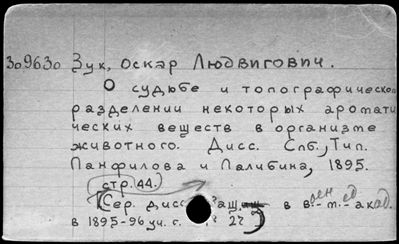 309630 Зук, Оскар Людвигович.
О судьбе и топографическом
разделении некоторых аромати
ческих веществ в организме
животного. Дисс. Спб., Тип.
Панфилова и Палибина, 1895.
стр. 44.
(Сер. дисс. в воен.-мед. акад.
в 1895-96 уч. г. № 22)